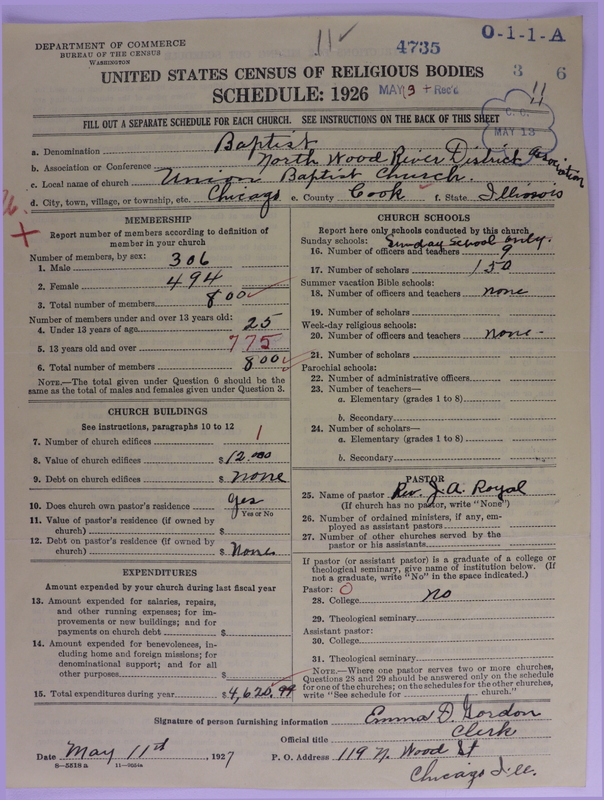 DEPARTMENT OF COMMERCE
BUREAU OF THE CENSUS
WASHINGTON
11
4735
O-1-1-A
UNITED STATES CENSUS OF RELIGIOUS BODIES
3 6
SCHEDULE: 1926
MAY 3 + Rec'd
11
C. C.
MAY 13
FILL OUT A SEPARATE SCHEDULE FOR EACH CHURCH. SEE INSTRUCTIONS ON THE BACK OF THIS SHEET
a. Denomination Baptist
b. Association or Conference North Wood River District Association
c. Local name of church Union Baptist Church.
d. City, town, village, or township, etc. Chicago e. County Cook f. State Illinois
MEMBERSHIP
Report number of members according to definition of member in your church
Number of members, by sex:
1. Male 306
2. Female 494
3. Total number of members 800
Number of members under and over 13 years old:
4. Under 13 years of age 25
5. 13 years old and over 775
6. Total number of members 800
NOTE.—The total given under Question 6 should be the
same as the total of males and females given under Question 3.
CHURCH BUILDINGS
See instructions, paragraphs 10 to 12
7. Number of church edifices 1
8. Value of church edifices $12.000
9. Debt on church edifices $ none
10. Does church own pastor's residence yes
Yes or No
11. Value of pastor's residence (if owned by
church) $
12. Debt on pastor's residence (if owned by
church) $ None
EXPENDITURES
Amount expended by your church during last fiscal year
13. Amount expended for salaries, repairs,
and other running expenses; for im-
provements or new buildings; and for
payments on church debt $
14. Amount expended for benevolences, in-
cluding home and foreign missions; for
denominational support; and for all
other purposes $
15. Total expenditures during year $4,620.99
CHURCH SCHOOLS
Report here only schools conducted by this church
Sunday schools: Sunday School only.
16. Number of officers and teachers 9
17. Number of scholars 150
Summer vacation Bible schools:
18. Number of officers and teachers none
19. Number of scholars
Week-day religious schools:
20. Number of officers and teachers none
21. Number of scholars
Parochial schools:
22. Number of administrative officers
23. Number of teachers—
a. Elementary (grades 1 to 8)
b. Secondary
24. Number of scholars—
a. Elementary (grades 1 to 8)
b. Secondary
PASTOR
25. Name of pastor Rev. J. A. Royal
(If church has no pastor, write "None")
26. Number of ordained ministers, if any, em-
ployed as assistant pastors
27. Number of other churches served by the
pastor or his assistants
If pastor (or assistant pastor) is a graduate of a college or
theological seminary, give name of institution below. (If
not a graduate, write "No" in the space indicated.)
Pastor: O
28. College no
29. Theological seminary
Assistant pastor:
30. College
31. Theological seminary
NOTE.—Where one pastor serves two or more churches,
Questions 28 and 29 should be answered only on the schedule
for one of the churches; on the schedules for the other churches,
write "See schedule for church."
Signature of person furnishing information Emma D. Gordon
Official title Clerk
Date May 11th, 1927 P. O. Address 119 N. Wood St
8—5518 a
Chicago Ill.